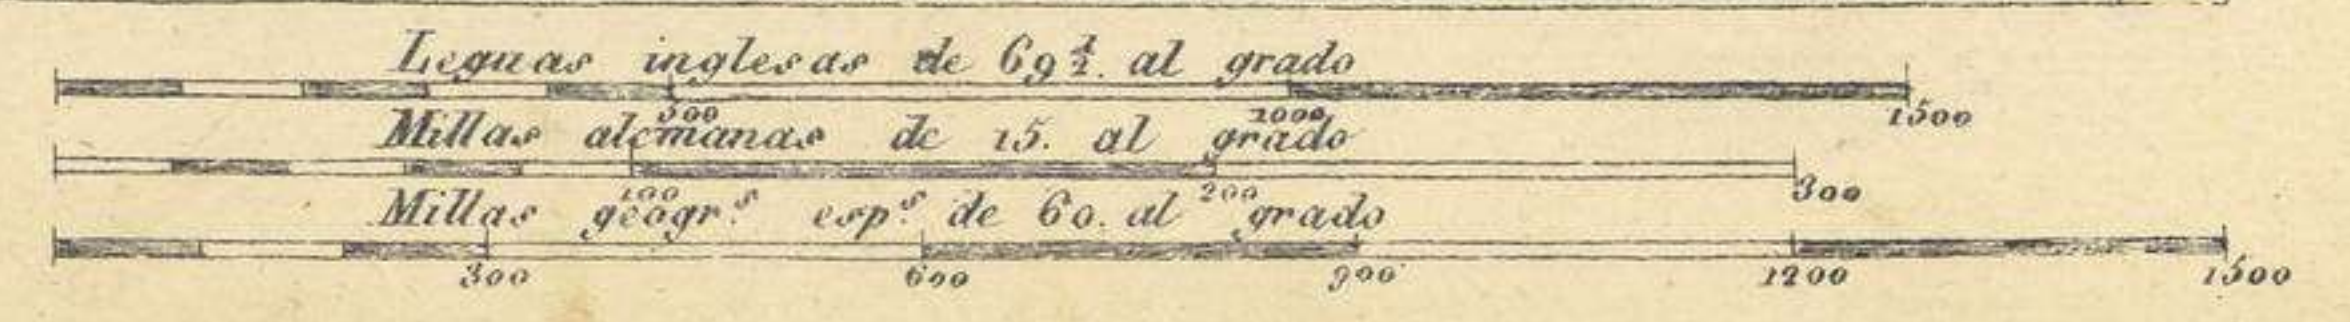 Leguas inglesas de 69 1/2. al grado
500 1000 1500
Millas alemanas de 15. al grado
100 200 300
Millas geogr.s esp.s de 60. al grado
300 600 900 1200 1500